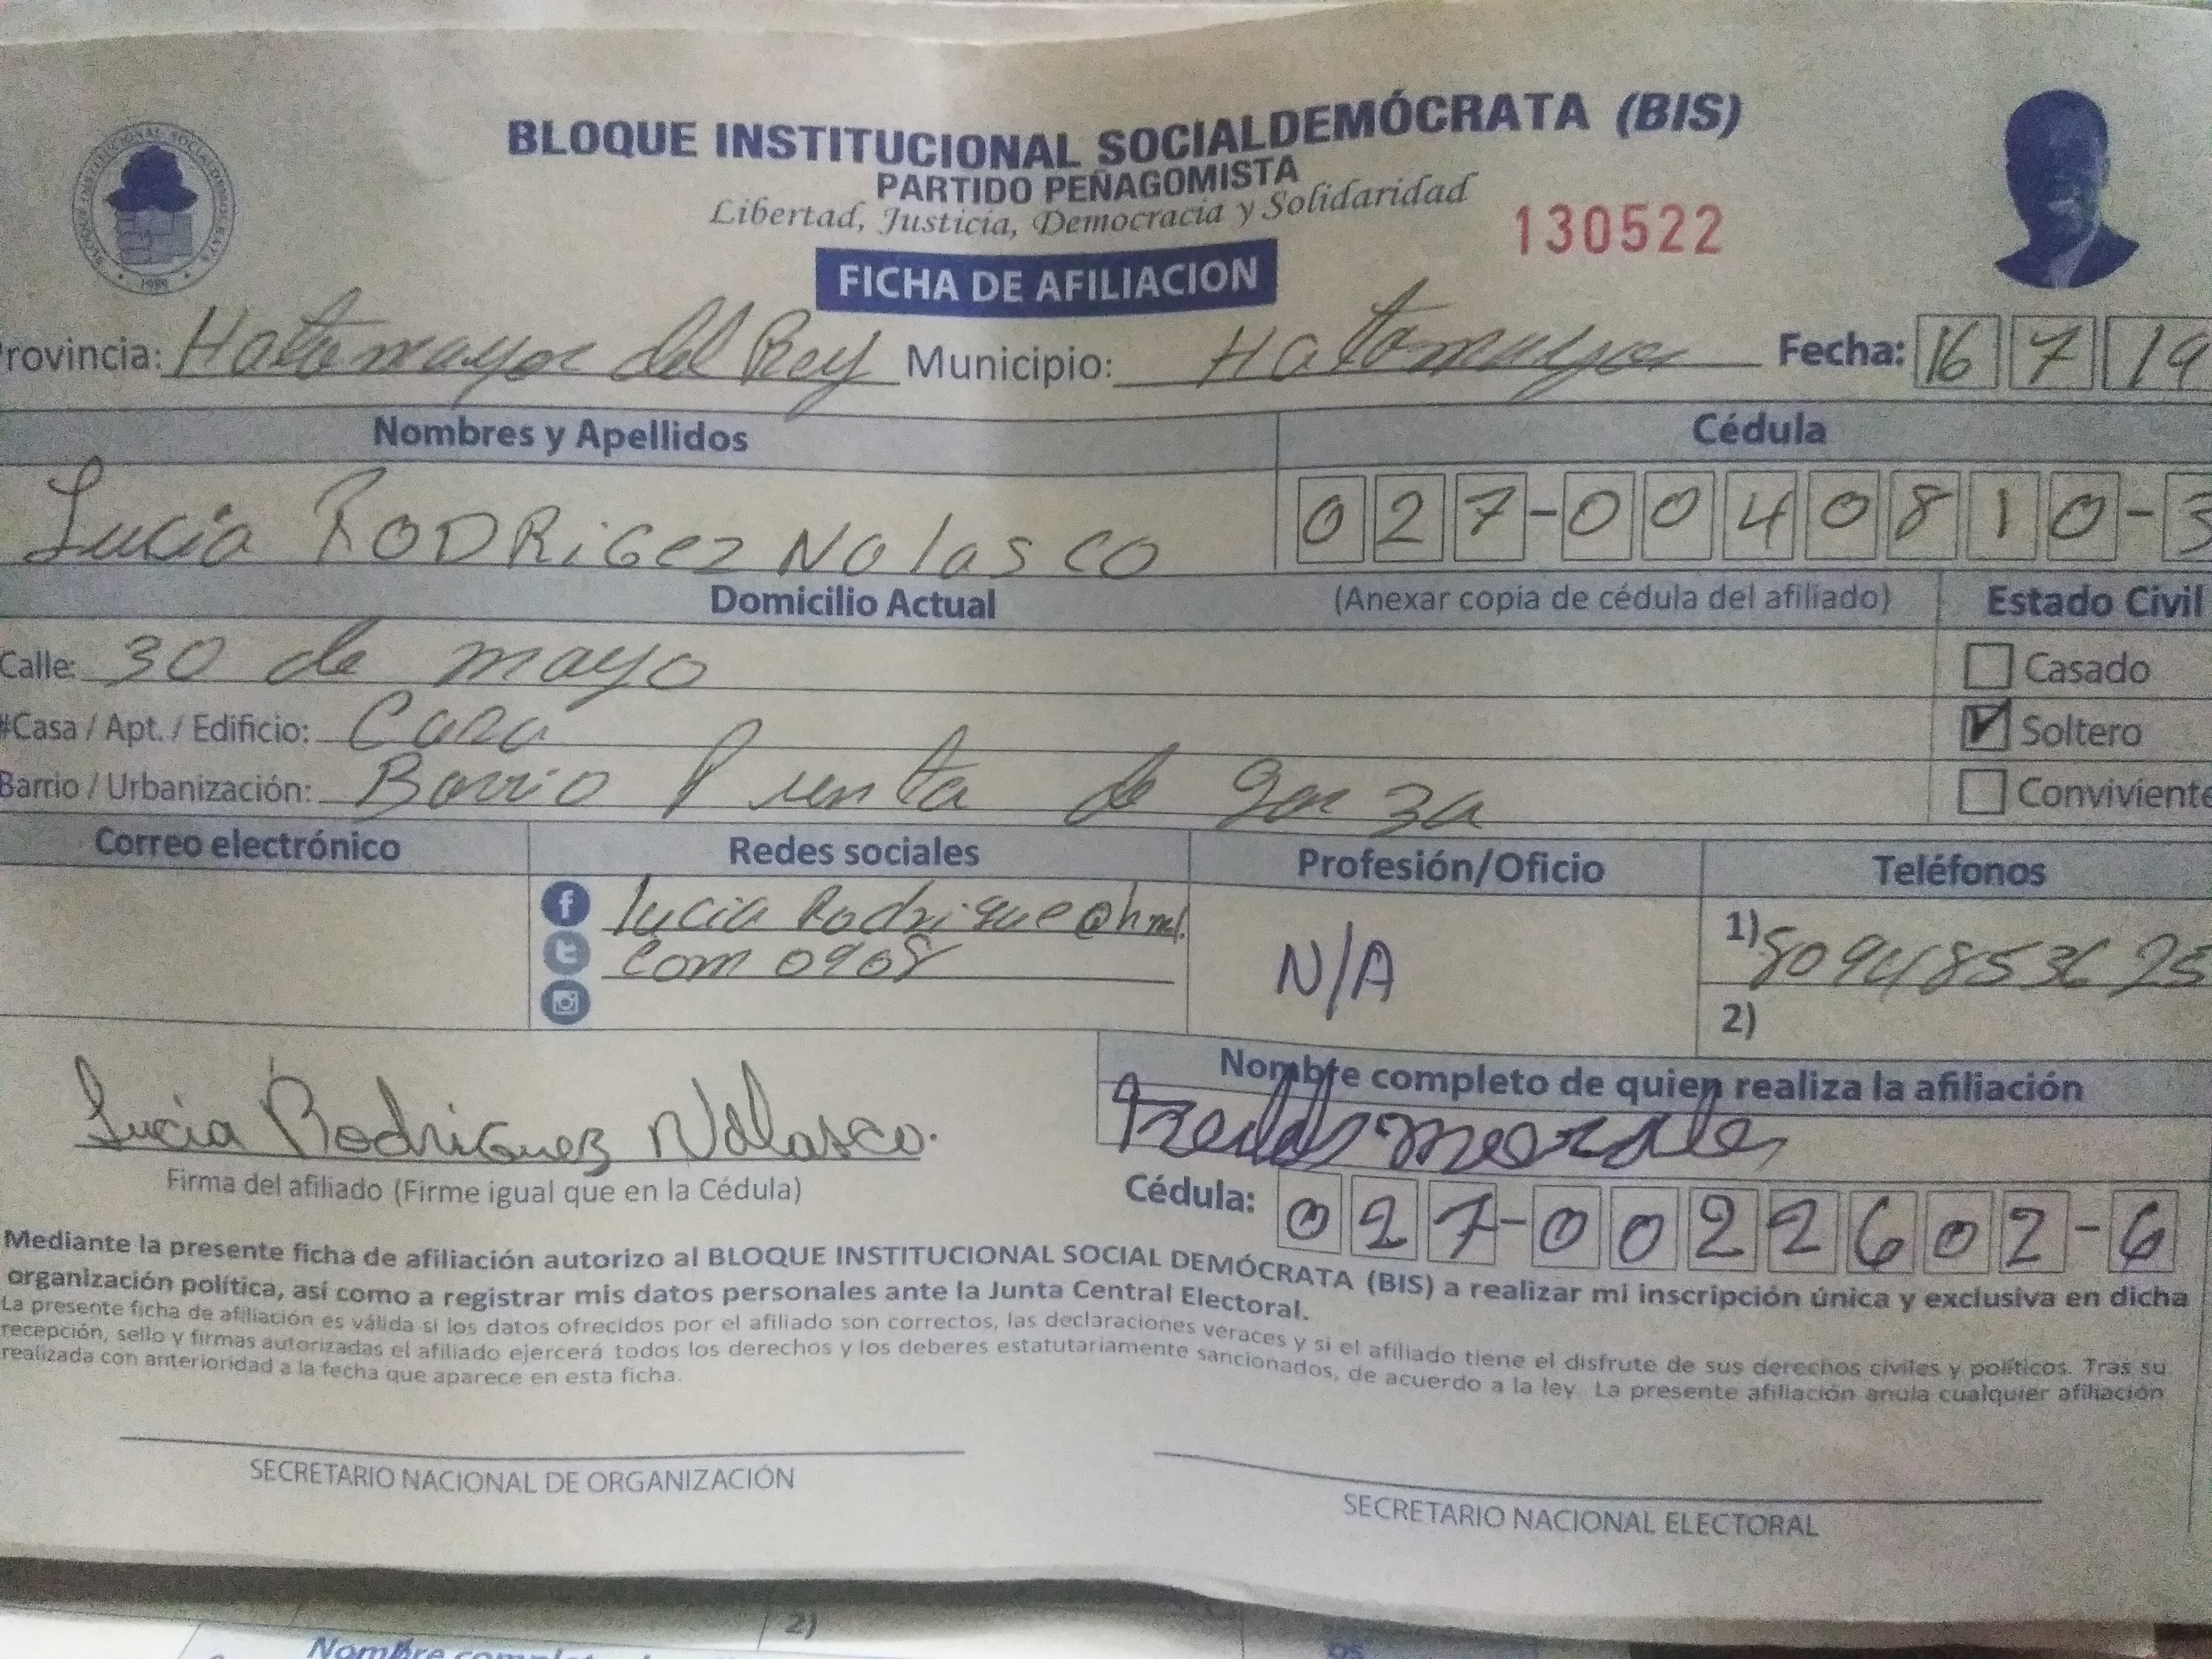 BLOQUE INSTITUCIONAL SOCIALDEMÓCRATA (BIS)
PARTIDO PEÑAGOMISTA
Libertad, Justicia, Democracia y Solidaridad
130522
FICHA DE AFILIACION
rovincia: Hatomayor del Rey Municipio: Hatomayor Fecha: 16 7 19
Nombres y Apellidos Cédula
Lucia RODRiGez NOlasco 027-0040810-3
Domicilio Actual (Anexar copia de cédula del afiliado) Estado Civil
Calle: 30 de mayo Casado
#Casa / Apt. / Edificio: Casa Soltero
Barrio / Urbanización: Barrio Punta de garza Conviviente
Correo electrónico Redes sociales Profesión/Oficio Teléfonos
lucia Rodrigue@hml. N/A 1) 8094853625
com 0908
2)
Nombre completo de quien realiza la afiliación
Lucia Rodriguez Nolasco.
Firma del afiliado (Firme igual que en la Cédula) Cédula: 027-0022602-6
Mediante la presente ficha de afiliación autorizo al BLOQUE INSTITUCIONAL SOCIAL DEMÓCRATA (BIS) a realizar mi inscripción única y exclusiva en dicha
organización política, así como a registrar mis datos personales ante la Junta Central Electoral.
La presente ficha de afiliación es válida si los datos ofrecidos por el afiliado son correctos, las declaraciones veraces y si el afiliado tiene el disfrute de sus derechos civiles y políticos. Tras su
recepción, sello y firmas autorizadas el afiliado ejercerá todos los derechos y los deberes estatutariamente sancionados, de acuerdo a la ley. La presente afiliación anula cualquier afiliación
realizada con anterioridad a la fecha que aparece en esta ficha.
SECRETARIO NACIONAL DE ORGANIZACIÓN
SECRETARIO NACIONAL ELECTORAL
2)